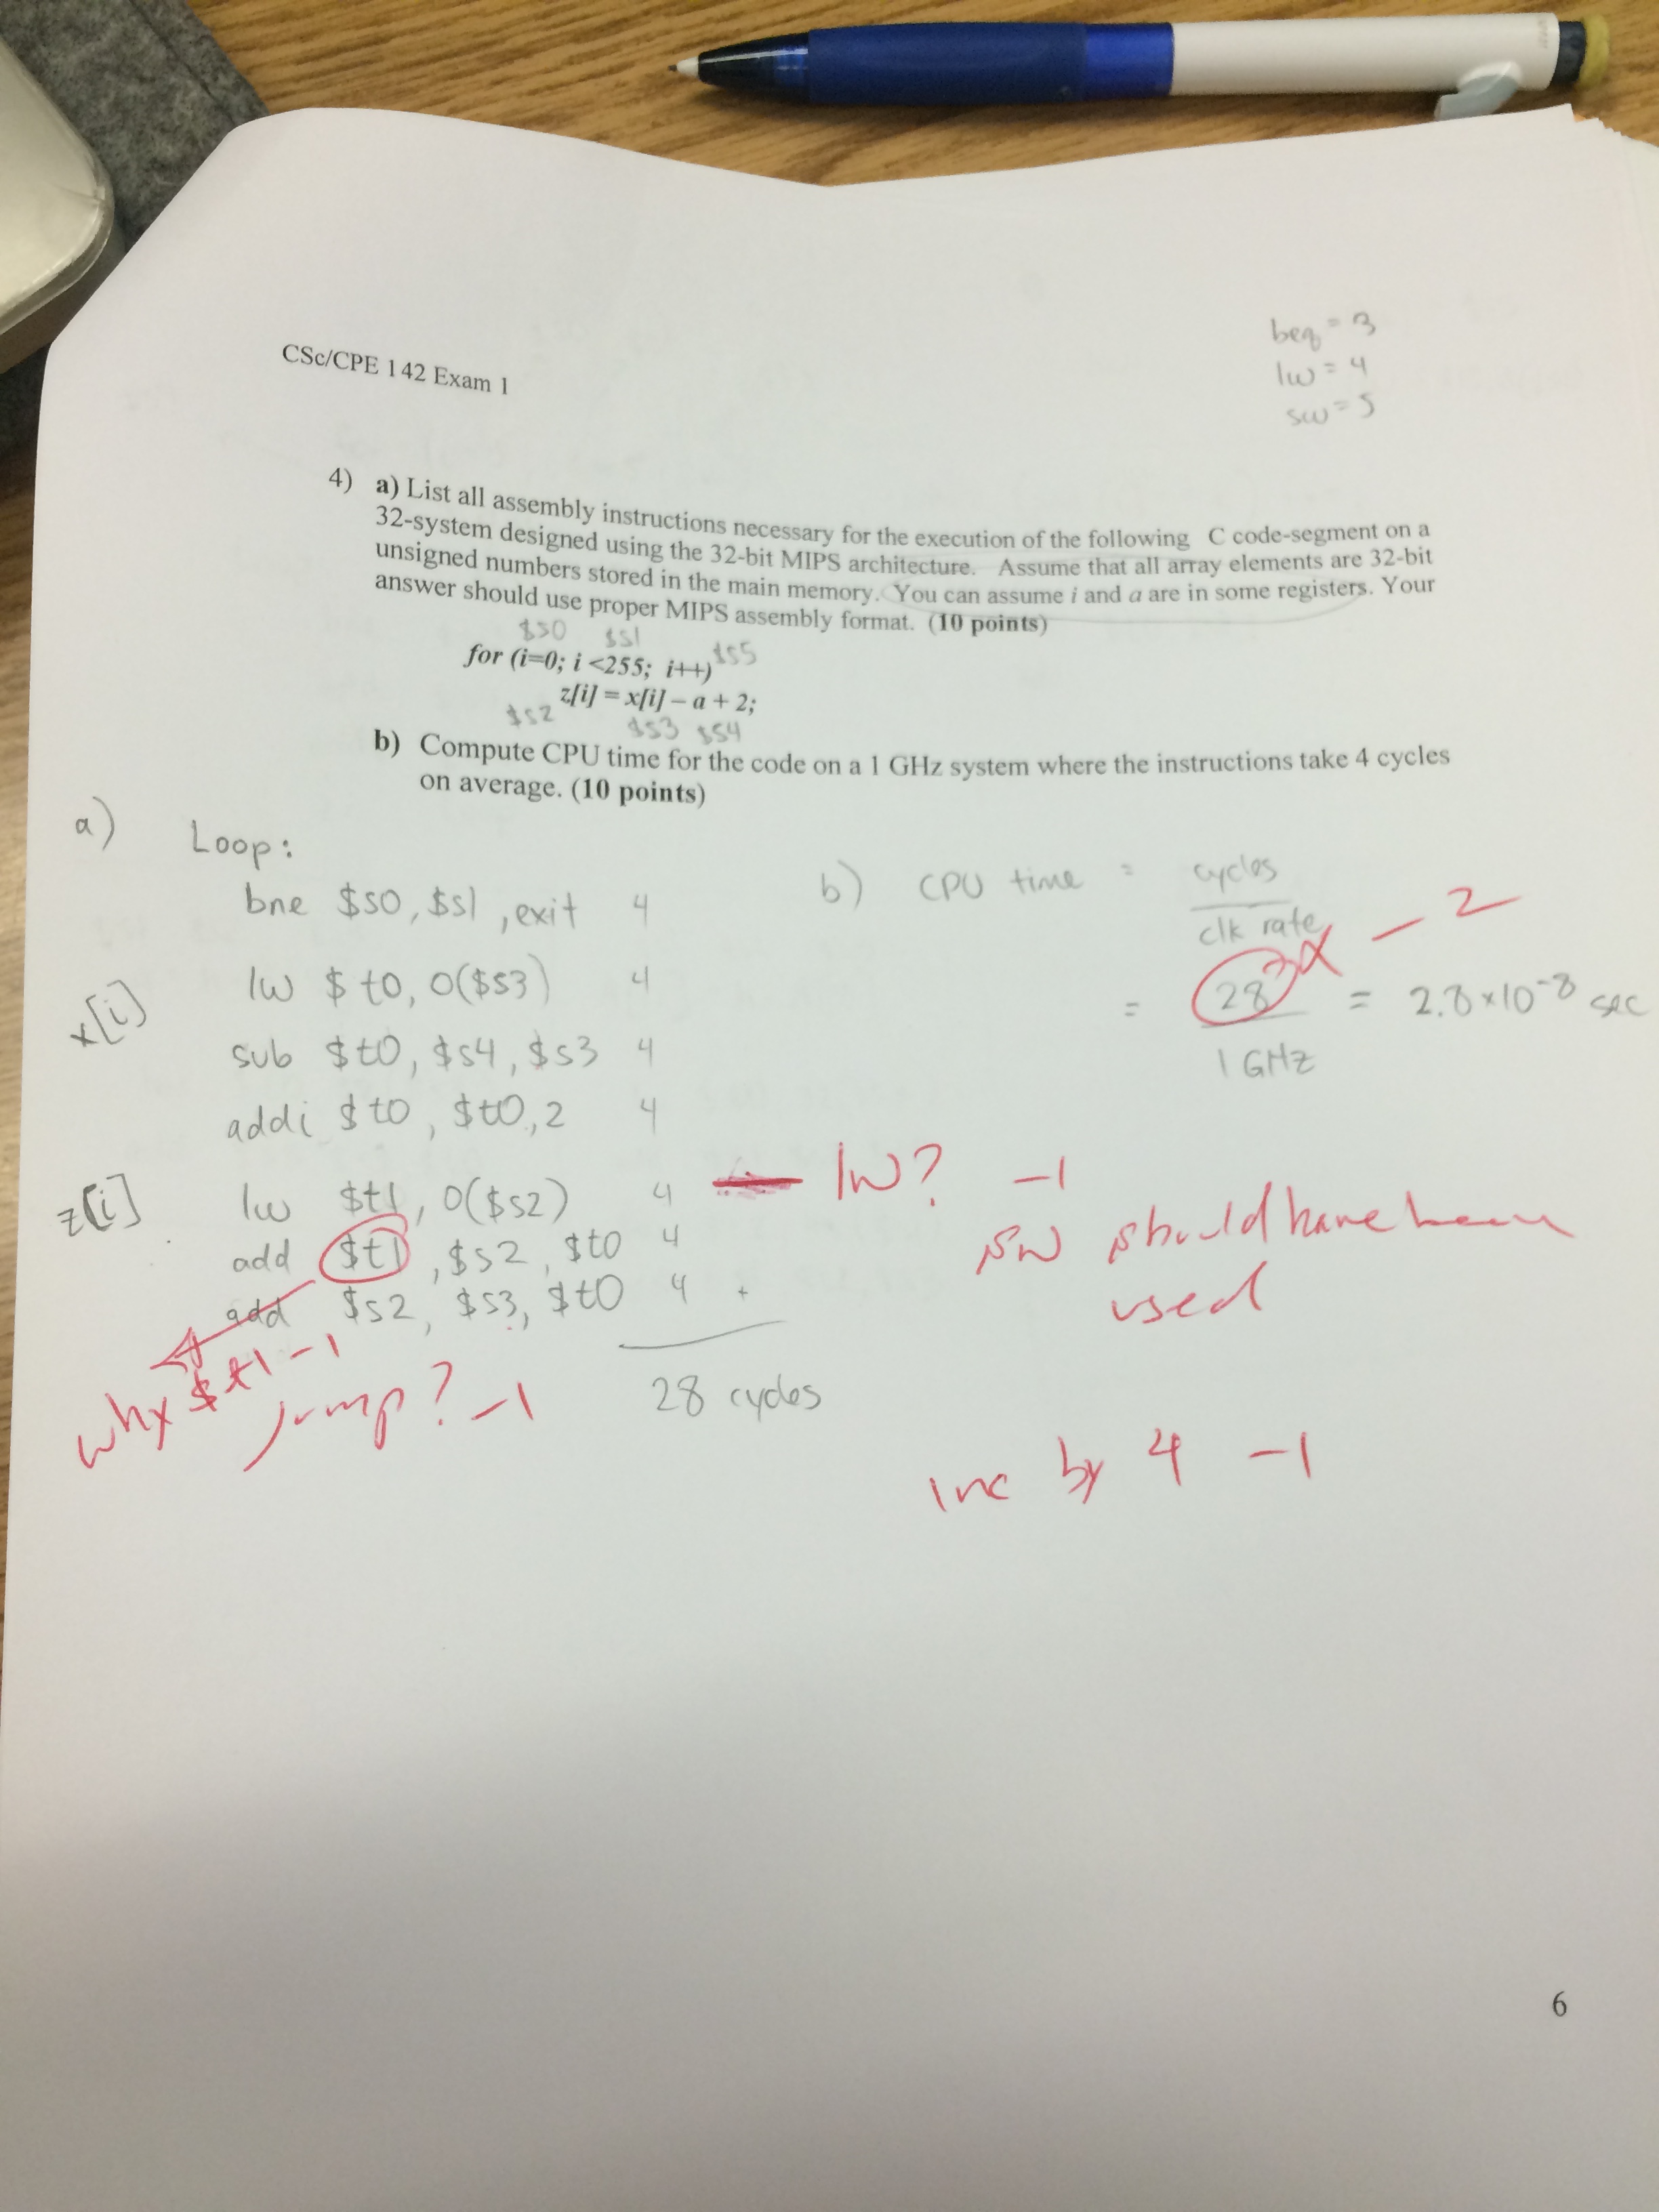 CSc/CPE 142 Exam 1
beq = 3
lw = 4
sw = 5
4) a) List all assembly instructions necessary for the execution of the following C code-segment on a
32-system designed using the 32-bit MIPS architecture. Assume that all array elements are 32-bit
unsigned numbers stored in the main memory. You can assume i and a are in some registers. Your
answer should use proper MIPS assembly format. (10 points)
$s0 $s1
for (i=0; i <255; i++) $s5
z[i] = x[i] – a + 2;
$s2 $s3 $s4
b) Compute CPU time for the code on a 1 GHz system where the instructions take 4 cycles
on average. (10 points)
a) Loop:
bne $s0, $s1, exit 4
x[i] lw $t0, 0($s3) 4
sub $t0, $s4, $s3 4
addi $t0, $t0, 2 4
z[i] lw $t1, 0($s2) 4
add $t1, $s2, $t0 4
add $s2, $s3, $t0 4 +
28 cycles
b) CPU time = cycles
clk rate
= 28 = 2.8 x 10-8 sec
1 GHz
- 2
lw? -1
sw should have been
used
why $t1 -1
jump? -1
inc by 4 -1
6